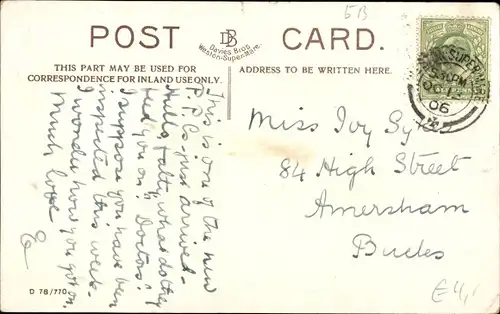 5B
POST CARD.
DB
Davies Bros
Weston-Super-Mare.
THIS PART MAY BE USED FOR
CORRESPONDENCE FOR INLAND USE ONLY.
ADDRESS TO BE WRITTEN HERE.
This is one of the new
P.P.C.- just arrived-
Hullo, fatty, what do they
feed you on? Doctors!
I suppose you have been
inspected this week-
I wonder how you got on.
Much love
Miss Ivy
84 High Street
Amersham
Bucks
SUPER-MARE
PM
OC
06
D 78/770.
£4,